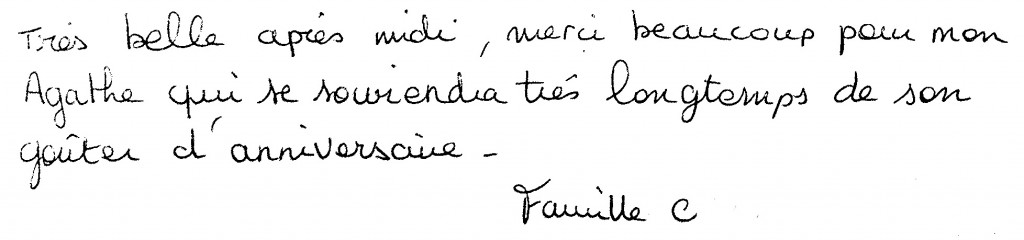 Très belle après midi, merci beaucoup pour mon
Agathe qui se souviendra très longtemps de son
goûter d'anniversaire -
Famille C